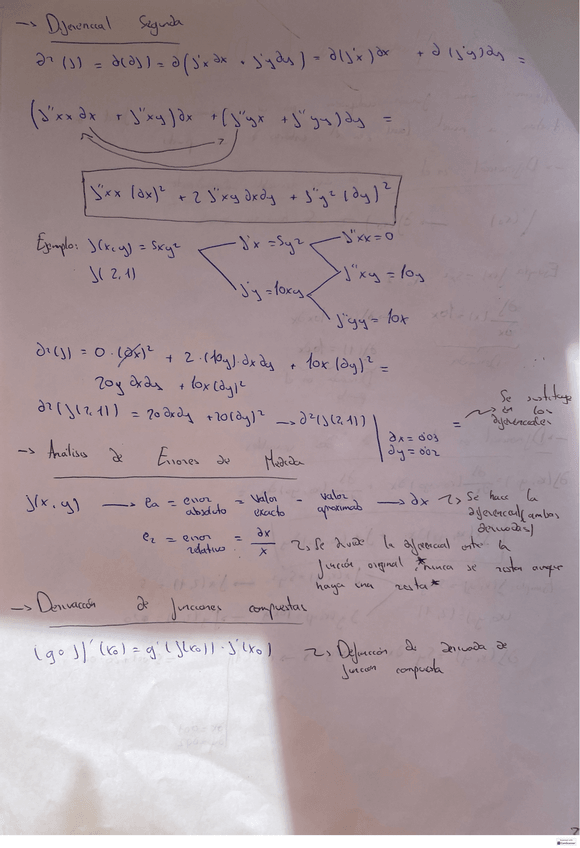 → Diferencial Segunda
∂²(f) = ∂(∂f) = ∂(f'x ∂x + f'y ∂y) = ∂(f'x)∂x + ∂(f'y)∂y =
(f''xx ∂x + f''xy)∂x + (f''yx + f''yy)∂y =
f''xx (∂x)² + 2 f''xy ∂x∂y + f''y² (∂y)²
Ejemplo: f(x,y) = 5xy²
f'x = 5y²
f''xx = 0
f(2,1)
f''xy = 10y
f'y = 10xy
f''yy = 10x
∂²(f) = 0·(∂x)² + 2·(10y)·∂x∂y + 10x(∂y)² =
20y ∂x∂y + 10x(∂y)²
∂²(f(2,1)) = 20∂x∂y + 20(∂y)² → ∂²(f(2,1)) | ∂x = 0'03 ∂y = 0'02 = Se sustituye en los diferenciales
→ Análisis de Errores de Medida
f(x,y) → ea = error absoluto = valor exacto - valor aproximado → ∂x Se hace la diferencial (ambas derivadas)
er = error relativo = ∂x/x Se divide la diferencial entre la
función original *nunca se restan aunque
haya una resta*
→ Derivación de funciones compuestas
(g∘f)'(x₀) = g'(f(x₀))·f'(x₀) Definición de derivada de
función compuesta
7